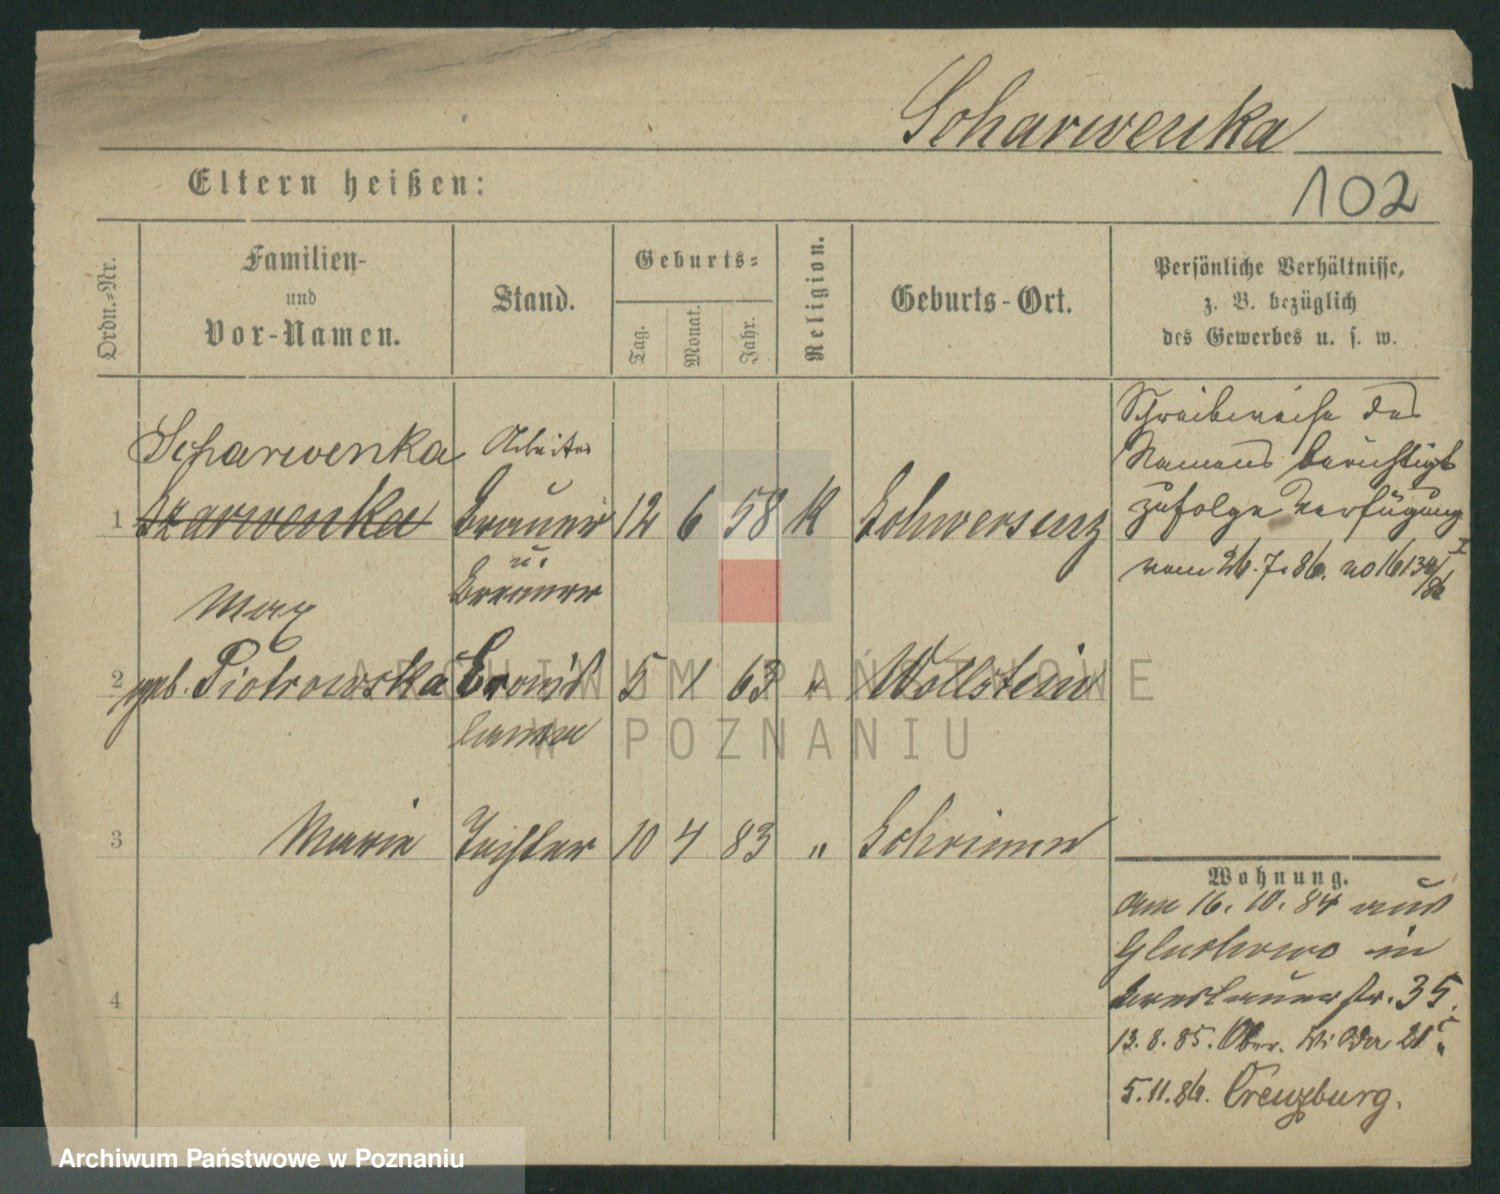 Scharwenka
Eltern heißen:
102
Ordn.-Nr.
Familien-
und
Vor-Namen.
Stand.
Geburts-
Tag.
Monat.
Jahr.
Religion.
Geburts-Ort.
Persönliche Verhältnisse,
z. B. bezüglich
des Gewerbes u. s. w.
Scharwenka Arbeiter
1 Szarwenka Brauer 12 6 58 K Schwersenz
u.
Max Brenner
2 geb. Piotrowska 5 1 63 " Wollstein
3 Marie Tochter 10 4 83 " Schrimm
4
Schreibweise des
Namens berichtigt
zufolge Verfügung
vom 26.7.86. no 16134/86 I
Wohnung.
am 16. 10. 84 aus
in
Breslauer str. 35.
13.8.85. Ober. Wilda 21
5.11.86. Creuzburg.
ARCHIWUM PAŃSTWOWE
W POZNANIU
Archiwum Państwowe w Poznaniu